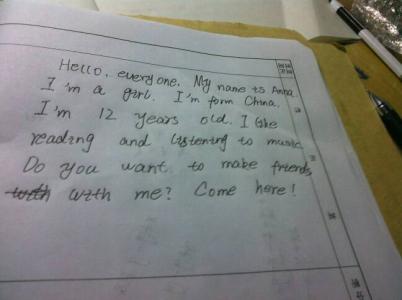 Hello, everyone. My name is Anna.
I'm a girl. I'm form China.
I'm 12 years old. I like
reading and listening to music
Do you want to make friends
with with me? Come here!